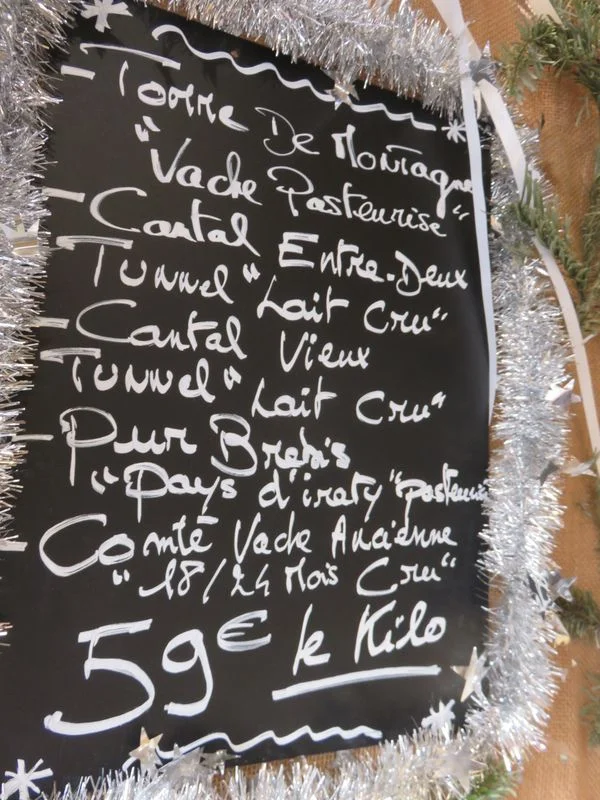 - Tomme De Montagne
"Vache Pasteurisé"
- Cantal Entre-Deux
Tunnel" Lait Cru"
- Cantal Vieux
Tunnel" Lait Cru"
- Pur Brebis
"Pays d'iraty "Pasteurisé
- Comté Vache Ancienne
"18/24 Mois Cru"
59€ le Kilo